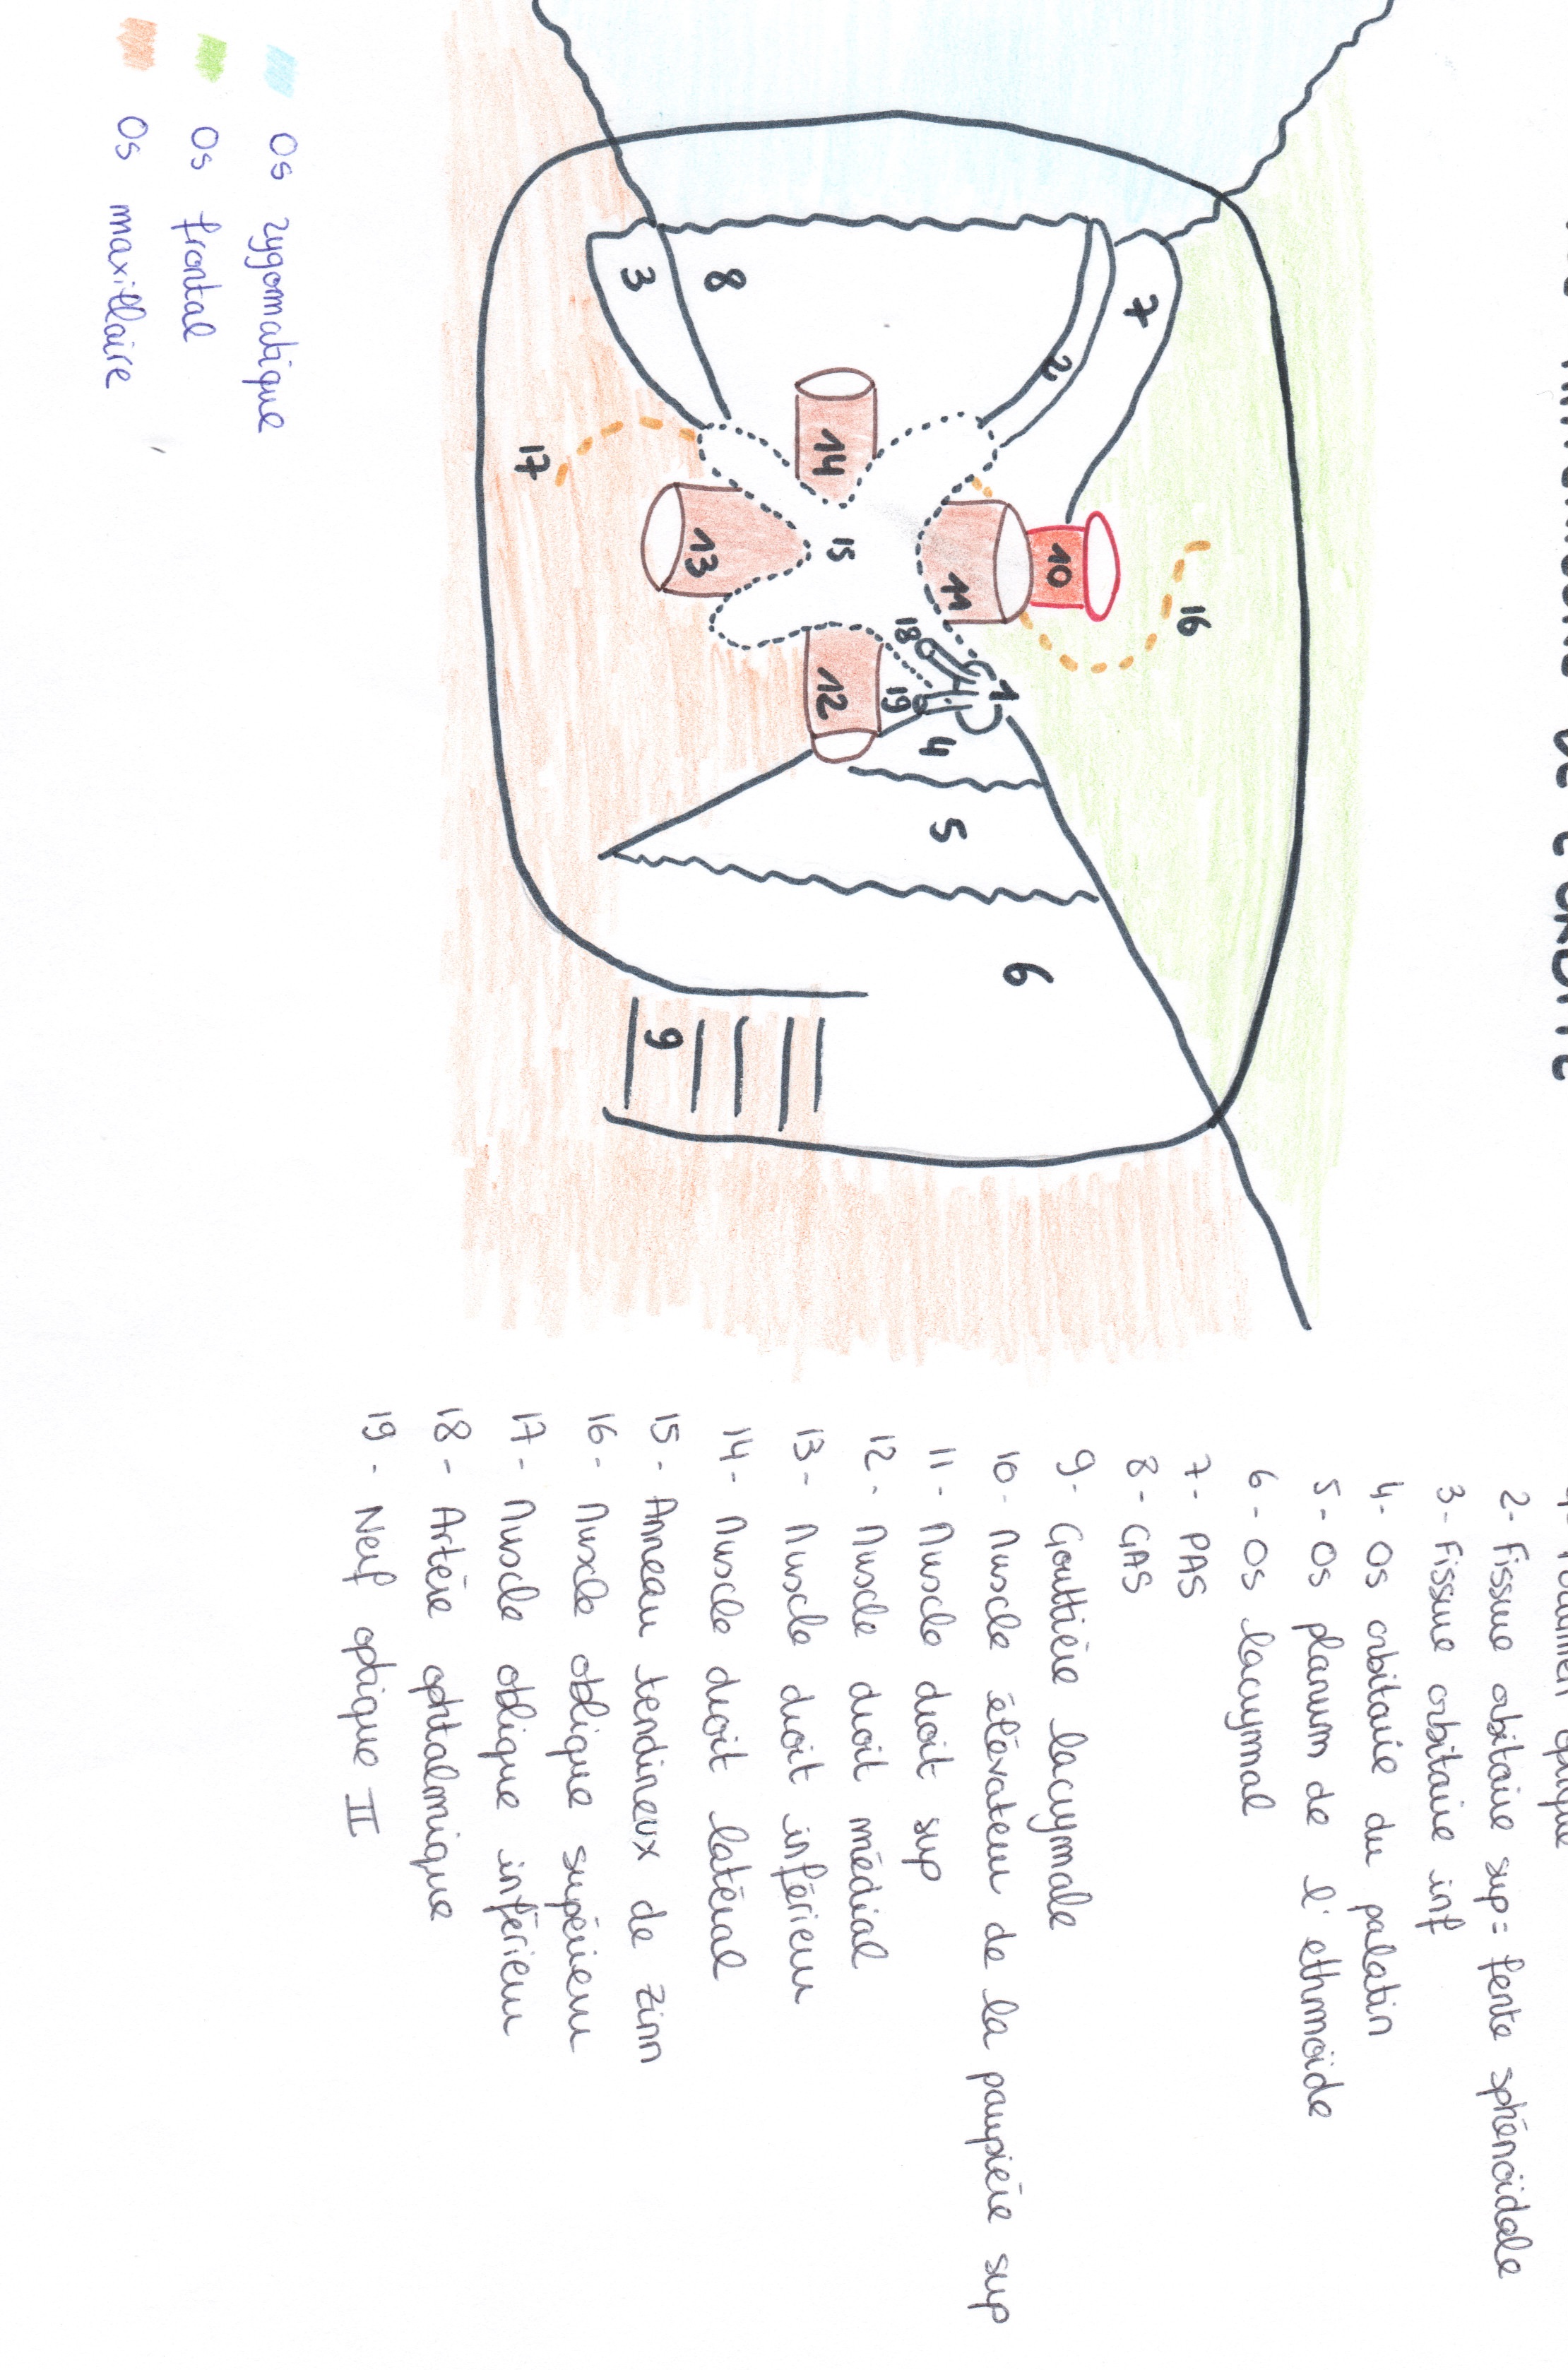 DE L'ORBITE
1- Foramen optique
2- Fissure orbitaire sup = fente sphénoïdale
3- Fissure orbitaire inf
4- Os orbitaire du palatin
5- Os planum de l'ethmoïde
6- Os lacrymal
7- PAS
8- GAS
9- Gouttière lacrymale
10- Muscle élévateur de la paupière sup
11- Muscle droit sup
12- Muscle droit médial
13- Muscle droit inférieur
14- Muscle droit latéral
15- Anneau tendineux de zinn
16- Muscle oblique supérieur
17- Muscle oblique inférieur
18- Artère ophtalmique
19- Nerf optique II
7
16
10
2
11
1
6
18
5
4
19
15
8
14
12
3
13
9
17
Os zygomatique
Os frontal
Os maxillaire